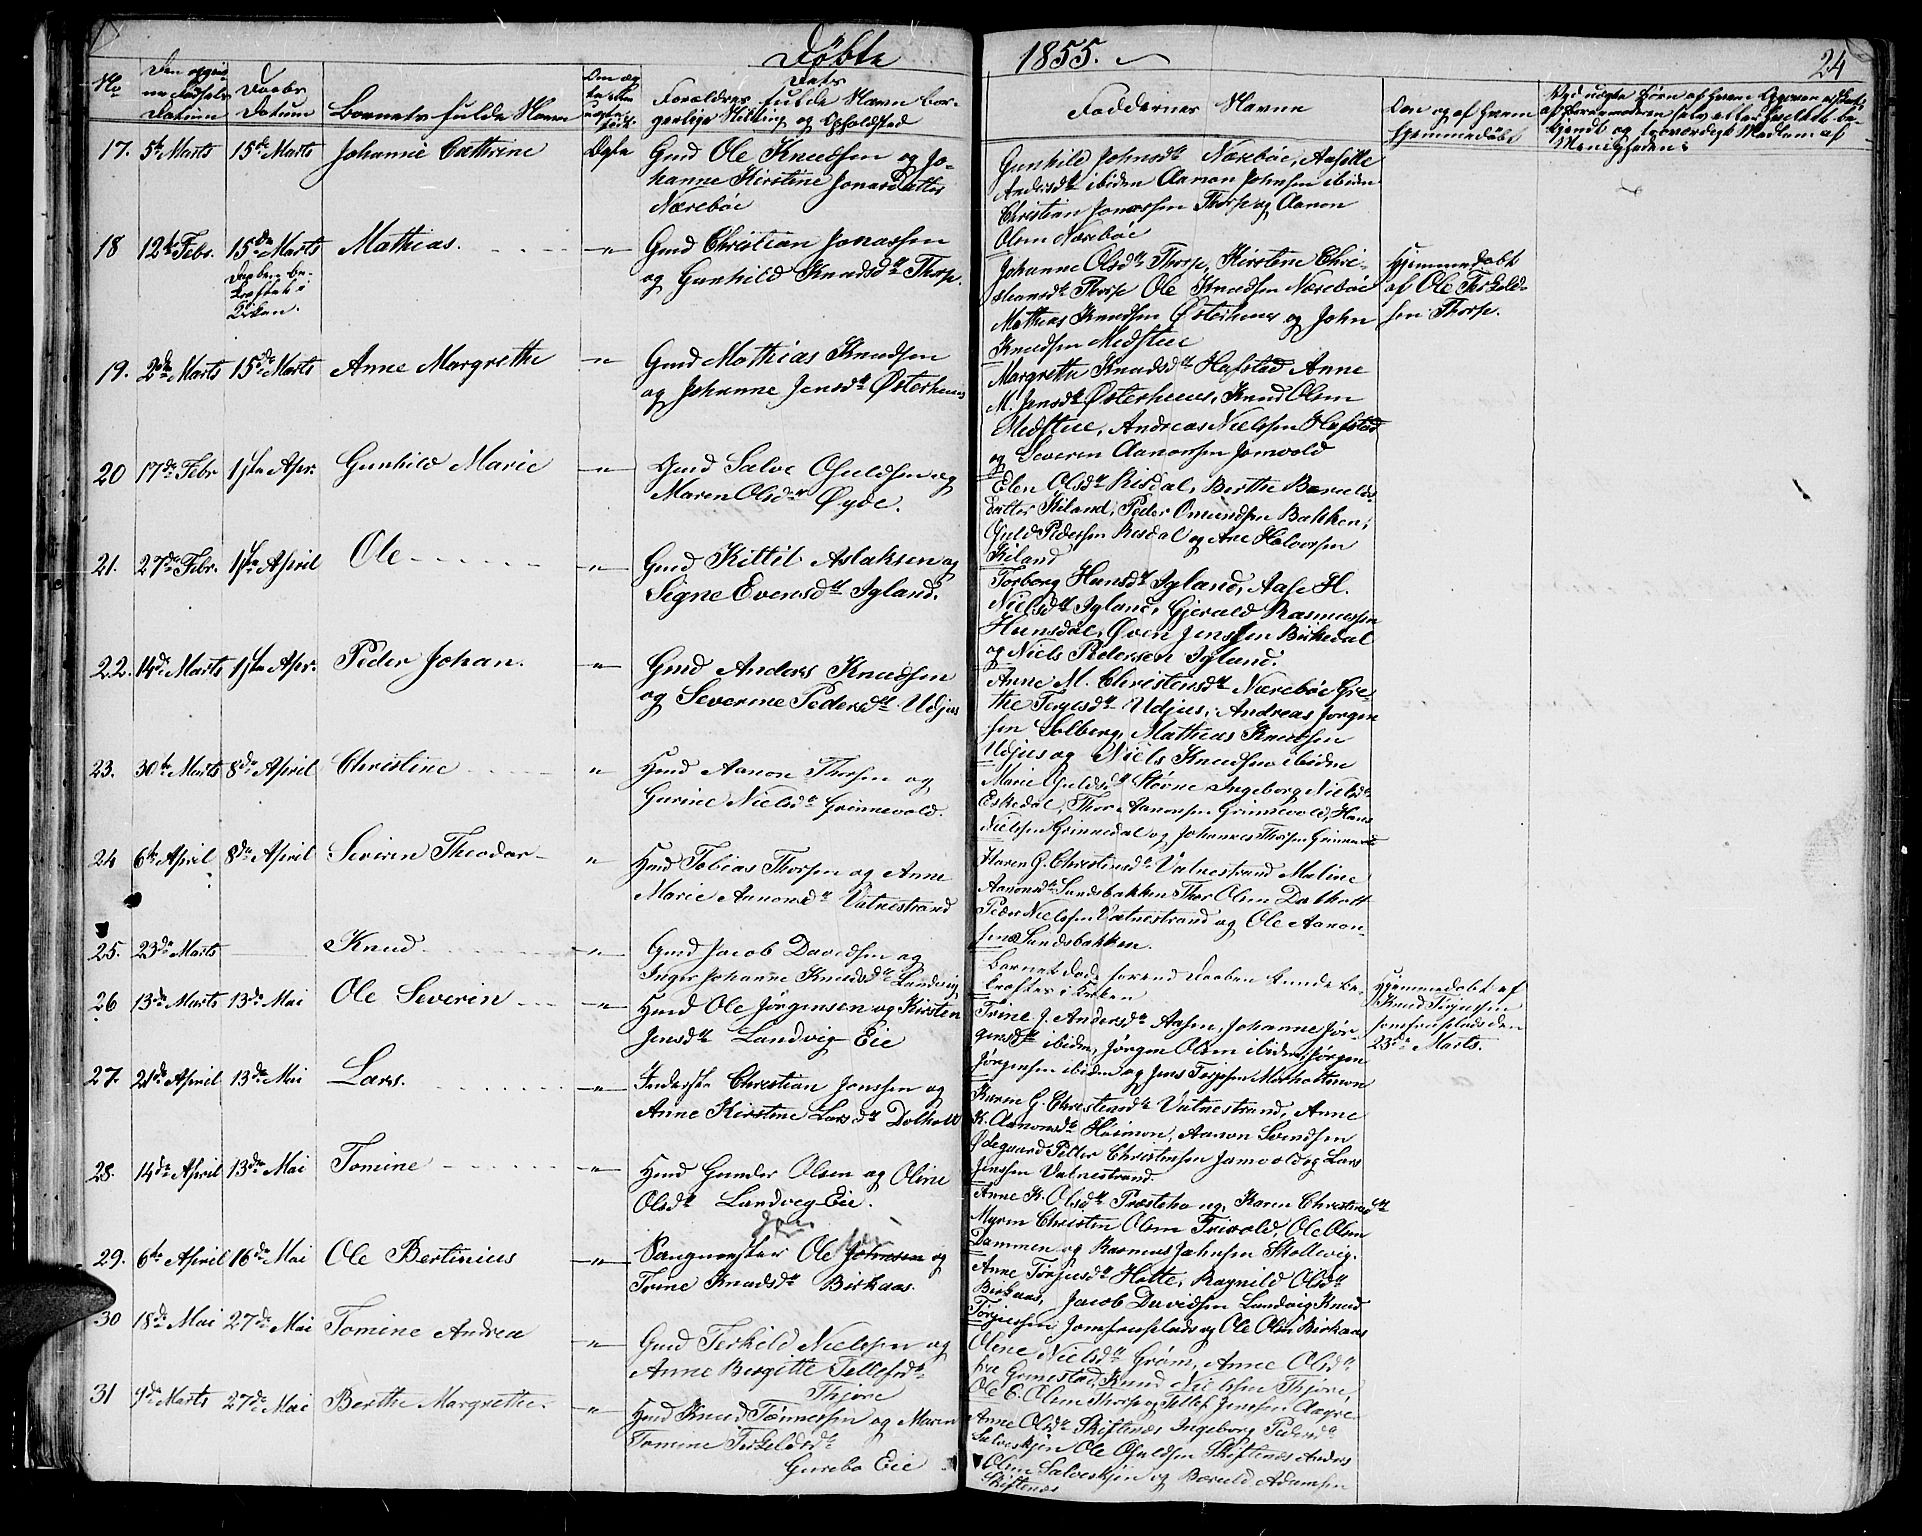 Døbte
1855.
24
No
Daabs
Datum
Datum
Barnets fulde Navn
Forældres fulde Navn bor-
gerlige Stilling og Opholdsted
Faddernes Navne
Om og af Hvem
Hjemmedøbt
17. 5te Marts 15de Marts Johanne Cathrine Ægte Gmd Ole Knudsen og Jo-
hanne Kirstine Jonasdatter
Nærebøe
Gunhild Johnsdtr Nærebøe,
Andersdtr ibiden Aanon Johnsen ibiden
Christian Jonassen Thorp og Aanon
Olsen Nærebøe
18 12te Febr. 15de Marts Mathias. -"- Gmd Christian Jonassen
og Gunhild Knudsdtr Thorp.
Daaben be-
kræftet i
Kirken.
Johanne Olsdtr Thorp, Kirstine Chri-
stiansdtr Thorp Ole Knudsen Nærebøe
Mathias Knudsen Østerhuus og John
Knudsen Midstue
Hjemmedøbt
af Ole Terkeld-
sen Thorp.
19. 2de Marts 15de Marts Anne Margrethe -"- Gmd Mathias Knudsen
og Johanne Jensdtr Østerhuus
Margrethe Knudsdtr Hafstad Anne
M. Jensdtr Østerhuus, Knud Olsen
Midstue, Andreas Nielsen Hafstad
og Severin Aanonsen Jonvold
20 17de Febr 1ste Apr. Gunhild Marie -"- Gmd Salve Gjuldsen og
Maren Olsdtr Øyde.
Elen Olsdtr Risdal, Berthe Baruld-
datter Kiland, Peder Omundsen Bakken,
Gjuld Pedersen Risdal og Are Halvorsen
Kiland
21. 27de Febr. 1ste April Ole -"- Gmd Kittil Aslaksen og
Signe Evensdtr Igland.
Torborg Hansdtr Igland, Aase H.
Nielsdtr Igland, Gjerald Rasmussen
Hunsdal, Øven Jensen Birkedal
og Niels Pedersen Igland.
22. 14de Marts 1ste Apr. Peder Johan. -"- Gmd Anders Knudsen
og Severine Pedersdtr Udjus
Anne M. Christensdtr Nærebøe Gre-
the Terjesdtr Udjus, Andreas Jørgen-
sen Solberg, Mathias Knudsen
Udjus og Niels Knudsen ibiden
23. 30te Marts 8de April Christine -"- Hmd Aanon Thorsen og
Gurine Nielsdtr Grimevold.
Marie Gjuldsdtr Støvne Ingeborg Nielsdtr
Eskedal, Thor Aanonsen Grimevold, Hans
Nielsen Grimedal og Johannes Thorsen
24 6te April 8de April Severin Theodor -"- Hmd Tobias Thorsen og Anne
Marie Aanonsdtr Vatnestrand
Karen G. Christensdtr Vatnestrand Maline
Aanonsdtr Sandsbakken Thor Olsen Dalholt
Peder Nielsen Vatnestrand og Ole Aanon-
sen Sandsbakken.
25. 23de Marts Knud -"- Gmd Jacob Davidsen og
Inger Johanne Knudsdtr Landvig
Barnet døde førend Daaben kunde be-
kræftes i Kirken
Hjemmedøbt af
Knud Terjesen
Jomfrueplads den
23de Marts.
26 13de Marts 13de Mai Ole Severin -"- Hmd Ole Jørgensen og Kirsten
Jensdtr Landvig Eie
Trine J. Andersdtr Aasen, Johanne Jør-
gensdtr ibiden, Jørgen Olsen ibiden, Jørgen
Jørgensen ibiden og Jens Terjesen Morholtmoen
27. 21de April 13de Mai Lars. -"- Inderste Christian Jonsen og
Anne Kirstine Larsdtr Dalholt
Karen G. Christensdtr Vatnestrand, Anne
K. Aanonsdtr Heimon, Aanon Svendsen
Ødegaard Peder Christensen Jomvold og Lars
Jensen Vatnestrand.
28. 14de April 13de Mai Tomine -"- Hmd Gunder Olsen og Oline
Olsdtr Landvig Eie.
Anne K. Olsdtr og Karen Christensdtr
Myren Christen Olsen Frivold, Ole Olsen
Dammen og Rasmus Johnsen Skollevig.
29. 6te April 16de Mai Ole Bertinius -"- Ole Johnsen og
Trine Knudsdtr Birkaas.
Anne Terjusdtr Holte, Ragnild Olsdtr
Birkaas, Jacob Davidsen Landvig Knud
Terjesen Jomfrueplads og Ole Olsen Birkaas
30 18de Mai 27de Mai Tomine Andrea -"- Gmd Terkild Nielsen og
Anne Birgitte Tellefsdtr
Thjøre
Oline Nielsdtr Grøm, Anne Olsdtr
Grimestad, Knud Nielsen Thjøre,
Ole C. Olsen Thorp og Tellef Jensen
31 9de Marts 27de Mai Berthe Margrethe. -"- Hmd Knud Tønnessen og Maren
Tomine Terkeldsdtr
Gurebo Eie
Anne Olsdtr Skiftenæs Ingeborg Pedersdtr
Salveskjen Ole Gjuldsen Skiftenæs Anders
Olsen Salveskjen og Baruld Adamsen
Skiftenæs